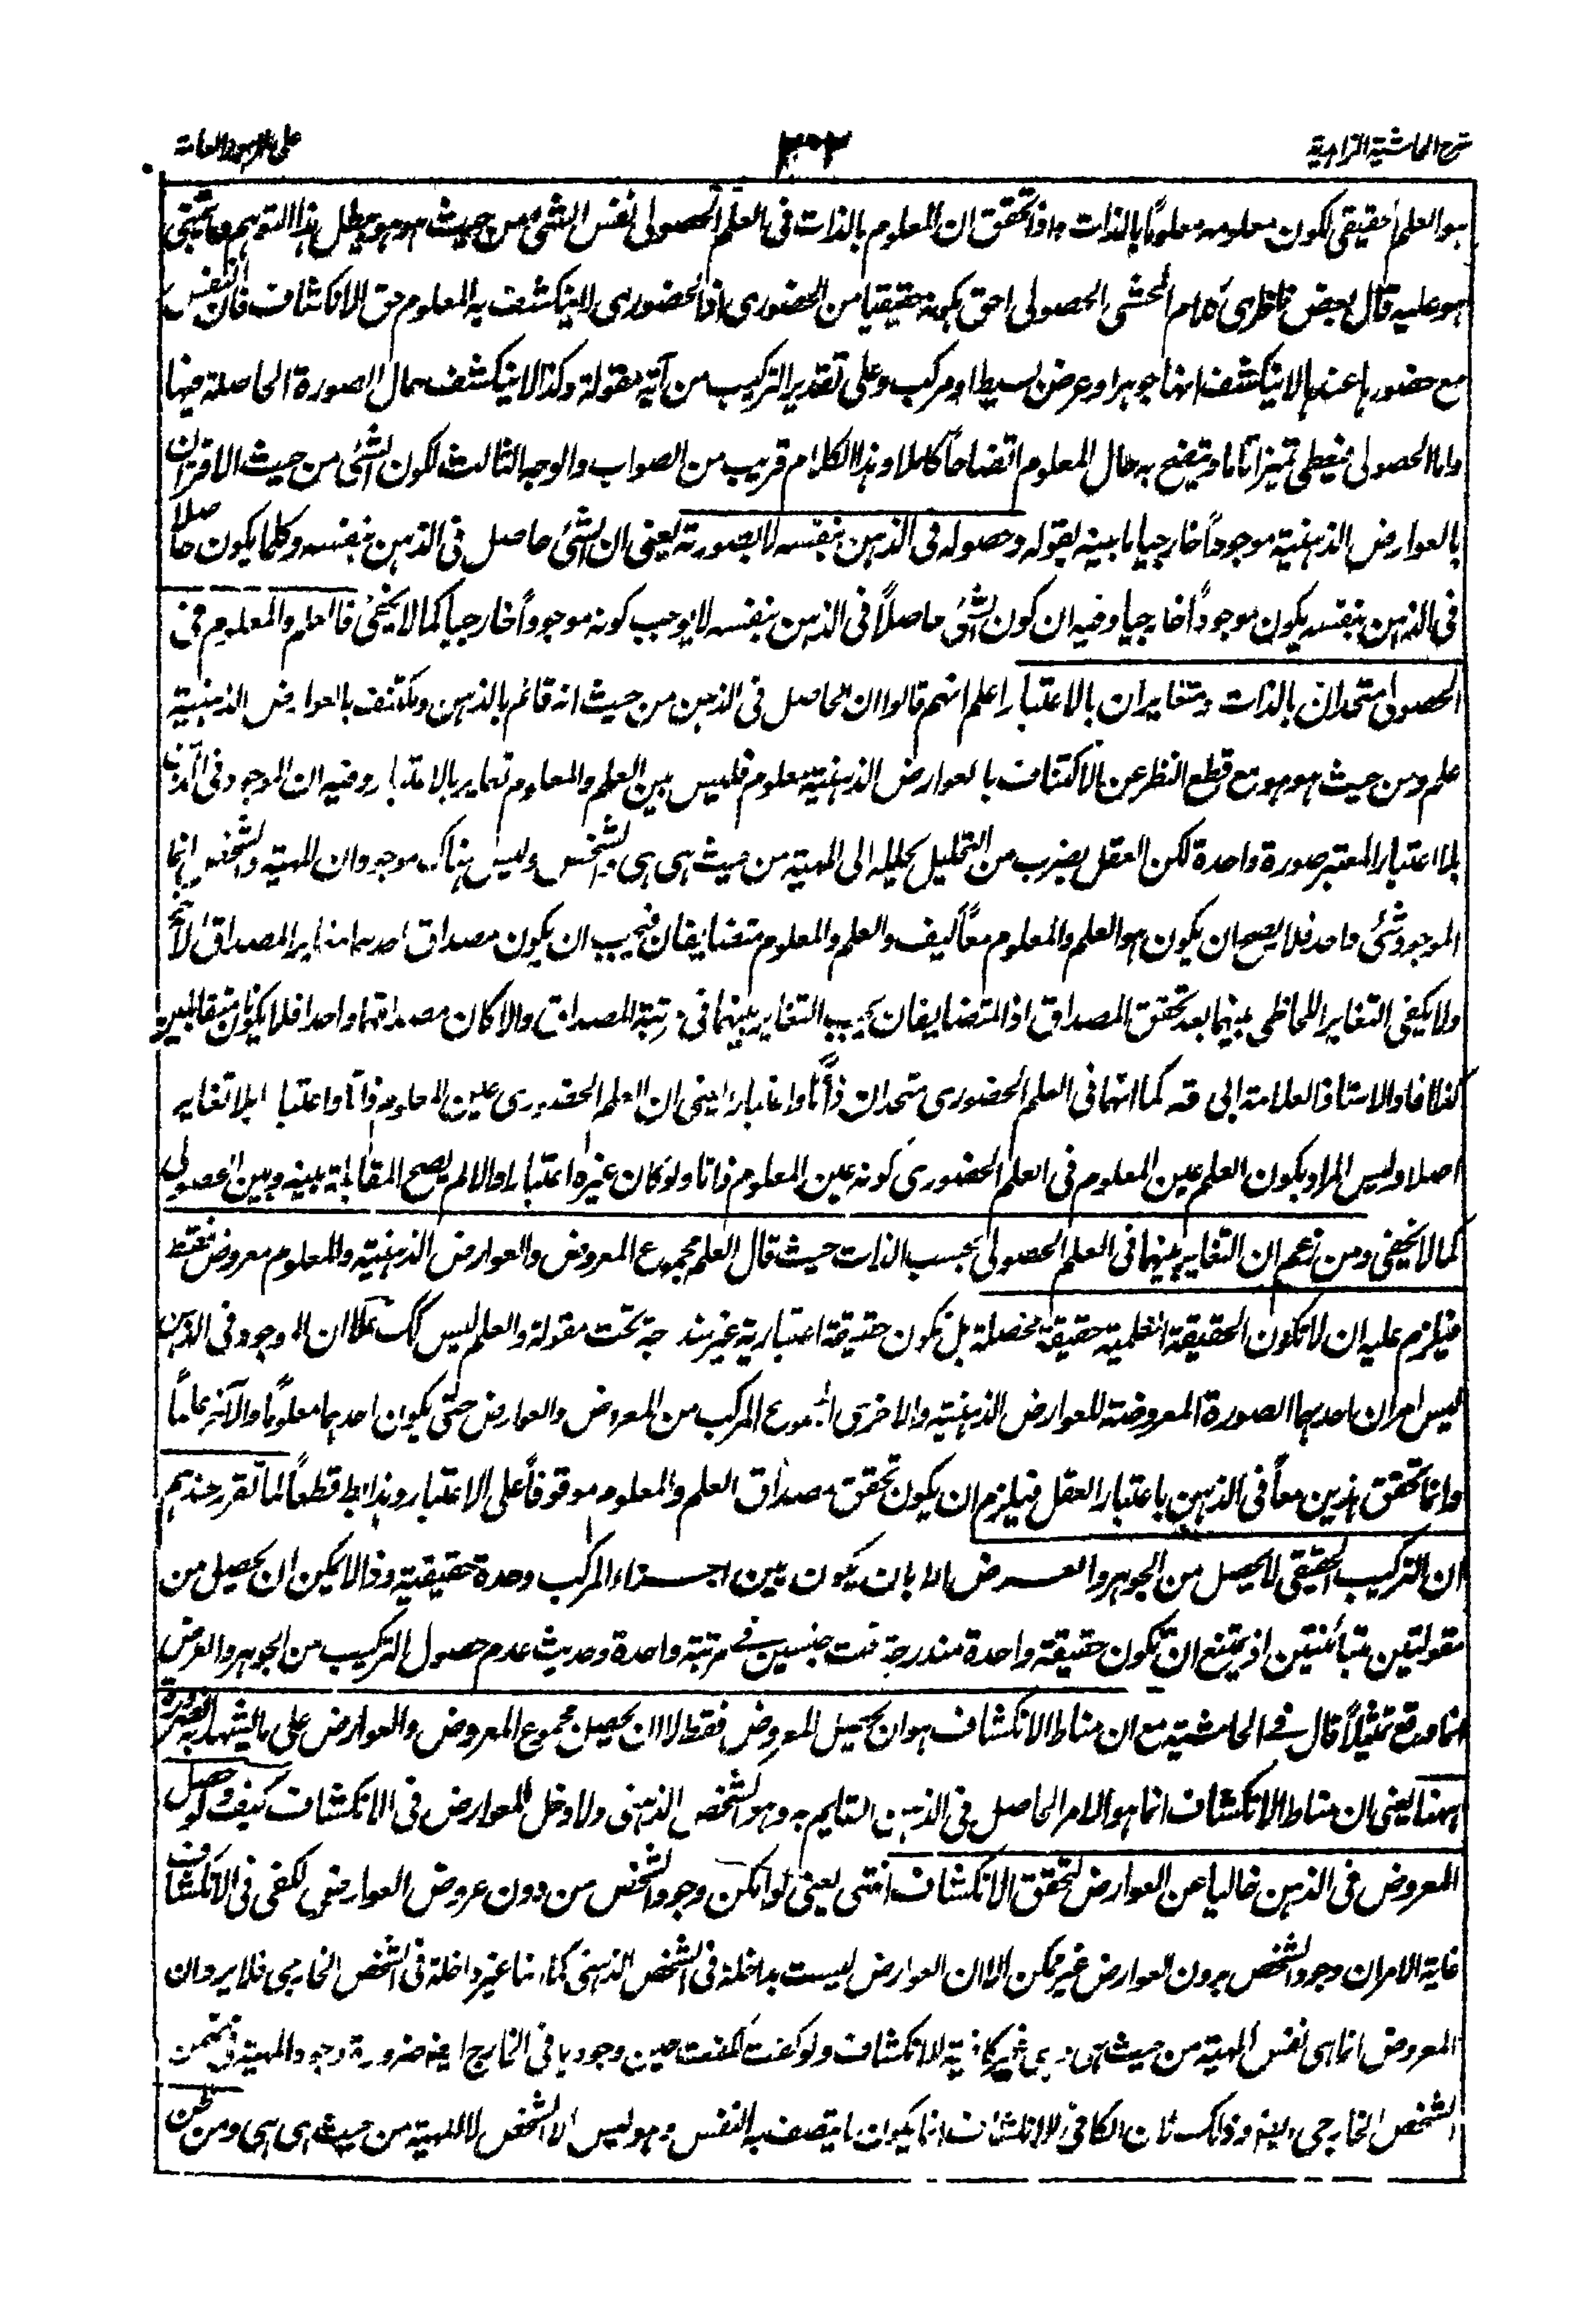 شرح الحاشية الزاهدية ٣٠٣ على الامور العامة
هو العلم الحقيقى لكون معلومه معلومًا بالذات واذا تحقق ان المعلوم بالذات فى العلم الحصولى نفس الشئ من حيث هو هو بطل هذا التوهم وما يبتنى
هو عليه قال بعض ناظرى كلام المحشى الحصولى احق بكونه حقيقيا من الحضورى اذ الحضورى لا ينكشف به المعلوم حق الانكشاف فان النفس
مع حضورها عندها لا ينكشف انها جوهر او عرض بسيط او مركب وعلى تقدير التركيب من آية مقولة وكذا لا ينكشف حال الصورة الحاصلة فيها
واما الحصولى فيعطى تميزا تاما ويتضح به حال المعلوم اتضاحًا كاملا وهذا الكلام قريب من الصواب والوجه الثالث لكون الشئ من حيث الاقتران
بالعوارض الذهنية موجودًا خارجيا ما بينه بقوله وحصوله فى الذهن بنفسه لا بصورته يعنى ان الشئ حاصل فى الذهن بنفسه وكلما يكون حاصلا
فى الذهن بنفسه يكون موجودًا خارجيا وفيه ان كون الشئ حاصلًا فى الذهن بنفسه لا يوجب كونه موجودًا خارجيا كما لا يخفى فالعلم والمعلوم فى
الحصولى متحدان بالذات ومتغايران بالاعتبار اعلم انهم قالوا ان الحاصل فى الذهن من حيث انه قائم بالذهن ومكتنف بالعوارض الذهنية
علم ومن حيث هو هو مع قطع النظر عن الاكتناف بالعوارض الذهنية معلوم فليس بين العلم والمعلوم تغاير بالاعتبار وفيه ان الموجود فى الذهن
بلا اعتبار المعتبر صورة واحدة لكن العقل بضرب من التحليل يحلله الى المهية من حيث هى هى والتشخص وليس هناك موجودان المهية والتشخص انما
الموجود شئ واحد فلا يصح ان يكون هو العلم والمعلوم معًا كيف والعلم والمعلوم متضايفان فيجب ان يكون مصداق احدهما مغاير المصداق الآخر
ولا يكفى التغاير اللحاظى بينهما بعد تحقق المصداق اذ المتضايفان يجب التغاير بينهما فى رتبة المصداق والا كان مصداقهما واحدا فلا يكونان متقابلين
كذا افاد الاستاذ العلامة ابى قه كما انهما فى العلم الحضورى متحدان ذاتًا واعتبارا يعنى ان العلم الحضورى عين المعلوم ذاتا واعتبارا بلا تغاير
اصلا وليس المراد بكون العلم عين المعلوم فى العلم الحضورى كونه عين المعلوم ذاتا ولو كان غيره اعتبارا والا لم يصح المقابلة بينه وبين الحصولى
كما لا يخفى ومن زعم ان التغاير بينهما فى العلم الحصولى بحسب الذات حيث قال العلم مجموع المعروض والعوارض الذهنية والمعلوم معروض فقط
فيلزم عليه ان لا تكون الحقيقة العلمية حقيقة محصلة بل تكون حقيقة اعتبارية غير مندرجة تحت مقولة والعلم ليس كك علا ان الموجود فى الذهن
ليس امران احدهما الصورة المعروضة للعوارض الذهنية والاخرى المجموع المركب من المعروض والعوارض حتى يكون احدهما معلومًا والآخر علمًا
وانما تحقق هذين معًا فى الذهن باعتبار العقل فيلزم ان يكون تحقق مصداق العلم والمعلوم موقوفًا على الاعتبار وهذا بط قطعًا لما تقرر عندهم
ان التركيب الحقيقى لا يحصل من الجوهر والعرض الا بان يكون بين اجزاء المركب وحدة حقيقية وذا لا يمكن ان يحصل من
مقولتين متبائنتين اذ يمتنع ان تكون حقيقة واحدة مندرجة تحت جنسين فى مرتبة واحدة وحديث عدم حصول التركيب من الجوهر والعرض
انما وقع تمثيلًا قال فى الحاشية مع ان مناط الانكشاف هو ان يحصل المعروض فقط لا ان يحصل مجموع المعروض والعوارض على ما يشهد به الضرورة
ههنا يعنى ان مناط الانكشاف انما هو الامر الحاصل فى الذهن القايم به وهو الشخص الذهنى ولا دخل للعوارض فى الانكشاف كيف ولو حصل
المعروض فى الذهن خاليا عن العوارض لتحقق الانكشاف انتهى يعنى لو امكن وجود الشخص من دون عروض العوارض لكفى فى الانكشاف
غاية الامر ان وجود الشخص بدون العوارض غير ممكن الا ان العوارض ليست بداخلة فى الشخص الذهنى كما انها غير داخلة فى الشخص الخارجى فلا يرد ان
المعروض انما هى نفس المهية من حيث هى وهى غير كافية للانكشاف ولو كفت لكفت حين وجودها فى الخارج ايضا ضرورة وجود المهية فى ضمن
الشخص الخارجى ايضا وذلك لان الكافى للانكشاف انما يكون ما يتصف به النفس وهو ليس الا الشخص لا المهية من حيث هى هى ومن ظن